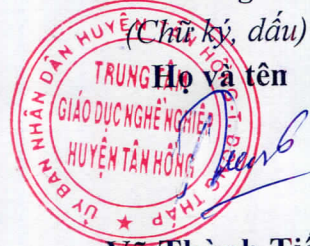 (Chữ ký, dấu)
Họ và tên
ỦY BAN NHÂN DÂN HUYỆN TÂN HỒNG T. ĐỒNG THÁP
TRUNG TÂM
GIÁO DỤC NGHỀ NGHIỆP
HUYỆN TÂN HỒNG
Võ Thành Tiế